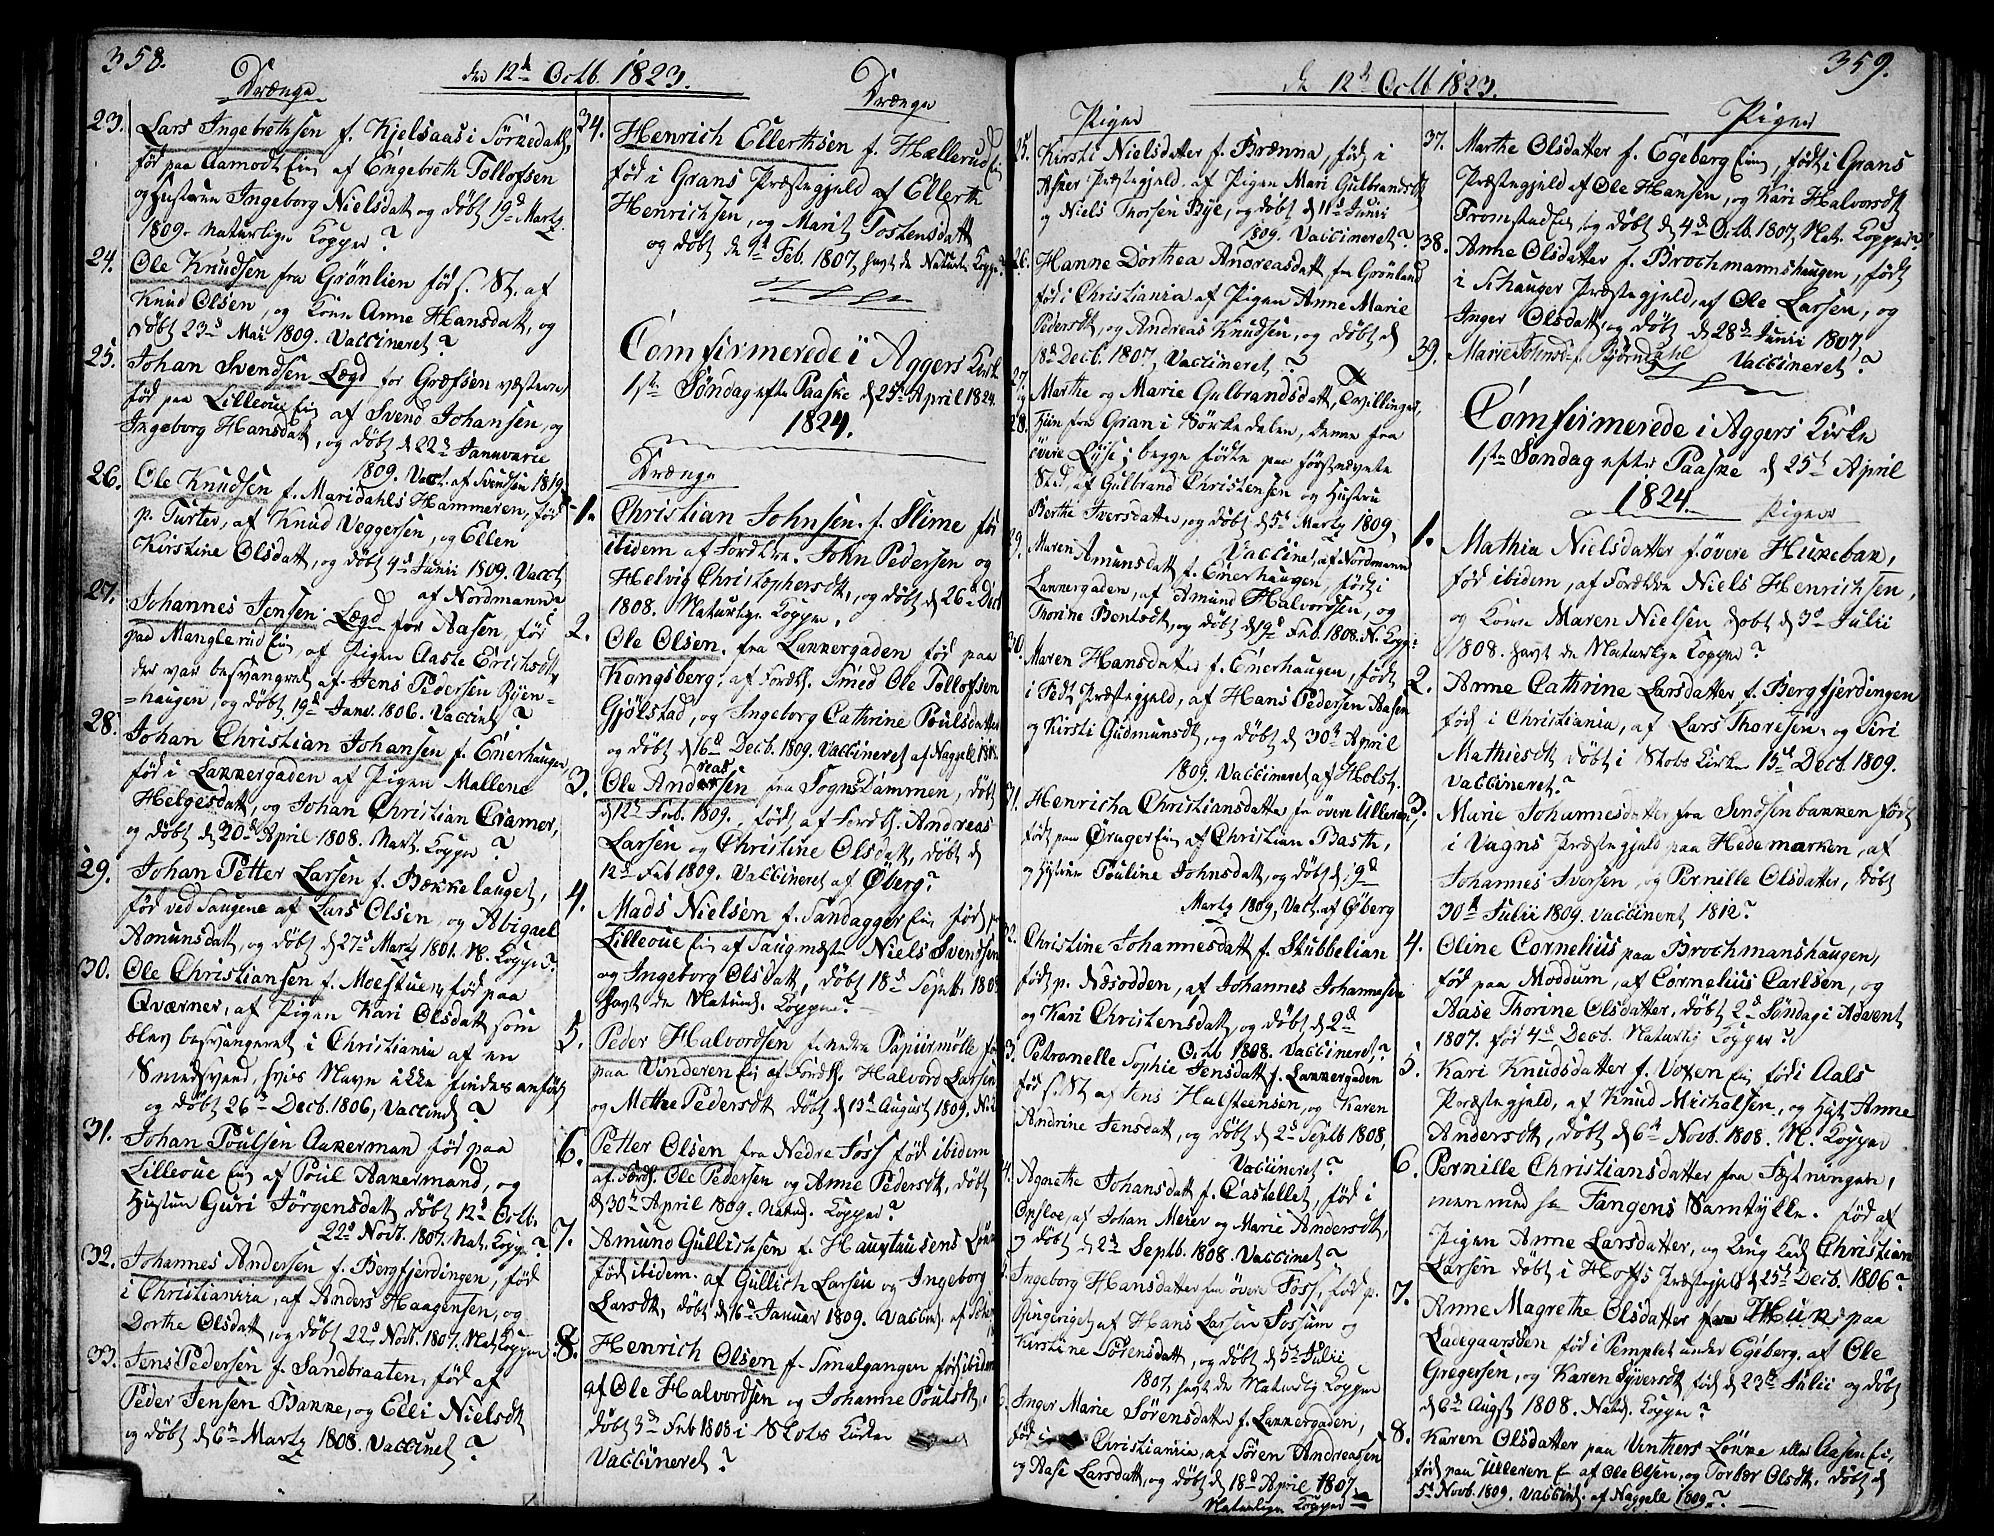 358.
Drænge
den 12te Octb. 1823.
Drænge
23. Lars Ingebrethsen f. Kjelsaas i Sørkedalen,
fød paa Aamodt Eie af Engebreth Tollofsen
og Hustrue Ingeborg Nielsdatt og døbt 19d Martz
1809. Naturlige Kopper?
24. Ole Knudsen fra Grønlien fød s. St. af
Knud Olsen, og Kone Anne Hansdatt, og
døbt 23d Mai 1809. Vaccineret?
25. Johan Svendsen Lægd for Grefsen væstere
fød paa Lilleoue Eie af Svend Johansen, og
Ingeborg Hansdatt, og døbt d 22d Januarie
1809. Vact. af Svendsen 1819.
26. Ole Knudsen f. Maridahls Hammeren, fød
p. Turter, af Knud Veggersen, og Ellen
Kirstine Olsdatt, og døbt 4d Junii 1809. Vacct
af Nordmann
27. Johannes Jensen Lægd for Aasen, fød
paa Manglerud Eie, af Pigen Aaste Erichsdt,
der var besvangret af Jens Pedersen Bjen-
=haugen, og døbt 19d Janv. 1806. Vaccint?
28. Johan Christian Johansen f. Enerhaugen
fød i Lakkergaden af Pigen Mallene
Helgesdatt, og Johan Christian Cramer,
og døbt d 30d April 1808. Nat. Kopper?
29. Johan Petter Larsen f. Bækkelauget,
fød ved Saugene af Lars Olsen, og Abigael
Amunsdatt, og døbt d 27d Martz 1801. N. Kopper?
30. Ole Christiansen f. Moestuen, fød paa
Qværner, af Pigen Kari Olsdatt som
blev besvangeret i Christiania af en
Smedsvend, hvis Navn ikke findes anført
og døbt 26d Decb. 1806, Vaccind?
31. Johan Poulsen Aakerman fød paa
Lilleoue Eie af Poul Aakermand, og
Hustrue Guri Jørgensdatt døbt 12d Octb.
22d Novb. 1807. Nat. Kopper?
32. Johannes Andersen f. Bergfjerdingen, fød
i Christiania, af Anders Haagensen, og
Dorthe Olsdatt, og døbt 22d Novb. 1807. Nat Kopper
33. Jens Pedersen f. Sandbraaten, fød af
Peder Jensen Bakke, og Elli Nielsdt
og døbt d 6te Martz 1808. Vaccinet?
34. Henrich Ellerthsen f. Hællerud Eie
fød i Grans Præstegjeld af Ellerth
Henrichsen, og Marit Tostensdatt
og døbt d 9d Feb. 1807, havt de Naturl. Kopper?
Comfirmerede i Aggers Kirke
1ste Søndag efter Paaske d 25de April 1824
1824.
Drænge
1. Christian Johnsen f. Slime fød
ibidem af Forældre. John Pedersen og
Helvig Christophersdt, og døbt d 26d Dec
1808. Naturlige Kopper.
2. Ole Olsen fra Lakkergaden fød paa
Kongsberg, af Fordh. Smed Ole Tollofsen
Gjølstad, og Ingeborg Cathrine Poulsdatter
og døbt d 16d Decb. 1809. Vaccineret af Naggell
3. Ole Andreassen fra Sognsdammen, døbt
d 12d Feb. 1809, født af Fordh. Andreas
Larsen og Christine Olsdatt, døbt d
12d Feb 1809. Vaccineret af Øberg?
4. Mads Nielsen f. Sandagger Eie, fød p.
Lilleoue Eie af Saugmæster Niels Svendsen
og Ingeborg Olsdatt, døbt 18d Septb. 1808
havt de Naturl. Kopper?
5. Peder Halvordsen f. nedre Papiirmølle fød
paa Vinderen Eie af Fordh. Halvord Larsen
og Methe Pedersdt døbt d 13d August 1809,
6. Petter Olsen fra Nedre Foss fød ibidem
af Fordh. Ole Pedersen og Anne Pedersdt, døbt
d 30te April 1809. Naturl. Kopper?
7. Amund Gullichsen f. Haugtausens Løkke
fød ibidem. af Gullich Larsen og Ingeborg
Larsdt, døbt d 6te Januar 1809. Vaccind. af
8. Henrich Olsen f. Smalgangen fød ibidem
af Ole Halvordsen og Johanne Poulsdt,
døbt 3de Feb 1808 i Opslo Kirke
Vaccineret?
359.
d 12te Octb 1823.
Piger
Piger
25. Kirsti Nielsdatter f. Brænna, født i
Asker Præstegjeld. af Pigen Mari Gulbrandsdt
og Niels Thorsen Bye, og døbt d 11d Junii
1809. Vaccineret?
26. Hanne Dorthea Andreasdatt, fra Grønland
fød i Christiania af Pigen Anne Marie
Pedersdt, og Andreas Knudsen, og døbt d
18d Decb. 1807, Vaccineret?
27. og Marthe og Marie Gulbrandsdt, Tvillinger,
28. Hiin fra Gran i Sørkedalen, denne fra
øvere Lyse; begge fødte paa førstnævnte
Sted af Gulbrand Christensen og Hustru
Berthe Iversdatter, og døbt d 5te Martz 1809,
Vaccinet, af Nordmann
29. Maren Amunsdatt f. Enerhaugen, født i
Lakkergaden, af Amund Halvordsen, og
Thorine Bentsdt, og døbt d 19d Feb. 1808. N. Kopper
30. Maren Hansdatter f. Enerhaugen, født
i Fedt Præstegjeld, af Hans Pedersen Aasen
og Kirsti Gudmunsdt, og døbt d 30te April
1809. Vaccineret af Holst.
31. Henricha Christiansdatter fra øvere Ulleren,
født paa Øragers Eie af Christian Basth,
og Hustrue Pouline Johnsdatt, og døbt d 9d
Martz 1809, Vact. af Øberg
32. Christine Johannesdatt f. Stubbelian
født p. Næsodden, af Johannes Johannesen
og Kari Christensdatt, og døbt d 2d
Octb 1808. Vaccineret?
33. Petronelle Sophie Jensdatt f. Lakkergaden
fød s. St af Jens Halsteensen, og Karen
Andrine Jensdatt, og døbt d 2d Septb 1808,
Vaccineret?
34. Agnethe Johansdatt f. Castellet, fød i
Opsloe, af Johan Meier og Marie Andersdt,
og døbt d 2d Septb. 1808. Vaccinet?
35. Ingeborg Hansdatter fra øvere Foss, fød p.
Ringeriget af Hans Larsen Fossum og
Kirstine Torensdatt, og døbt d 5te Julii
1807 havt de Naturlig Kopper
36. Inger Marie Sørensdatter f. Lakkergaden,
fød i Christiania, af Sören Andreassen
og Aase Larsdatt, og døbt d 18d April 1807.
Naturlige Kopper
37. Marthe Olsdatter f. Egeberg Eie, født i Grans
Præstegjeld af Ole Hansen, og Kari Halvorsdt
Fromstad Eie, og døbt d 4d Octb. 1807, Nat. Kopper?
38. Anne Olsdatter f. Brochmannshaugen, født
i Schauger Præstegjeld, af Ole Larsen, og
Inger Olsdatt, og døbt d 28d Junii 1807,
39. Marie Johnsd. f. Bjørndahl Vaccineret?
Comfirmerede i Aggers Kirke
1ste Søndag efter Paaske d 25d April
1824.
Piger
1. Mathia Nielsdatter f. øvere Hukebak,
fød ibidem, af Forældre Niels Henrichsen,
og Kone Maren Nielsen døbt d 3d Julii
1808. havt de Naturlige Kopper?
2. Anne Cathrine Larsdatter f. Bergfjerdingen
fød i Christiania, af Lars Thoresen, og Siri
Mathiesdt døbt i Skobs Kirke 15d Decb. 1809.
Vaccineret?
3. Marie Johannesdatter fra Sindsenbakken født
i Vagns Præstegjeld paa Hedemarken, af
Johannes Iversen, og Pernille Olsdatter, døbt
30te Julii 1809. Vaccineret 1812?
4. Oline Cornelius paa Brochmanshaugen,
fød paa Modum, af Cornelius Carlsen, og
Aase Thorine Olsdatter, døbt 2d Søndag i Advent
1807. før 4d Decb. Naturlig Kopper?
5. Kari Knudsdatter f. Voxen Eie fød i Aals
Præstegjeld, af Knud Michelsen, og Hust Anne
Andersdt, døbt d 6te Novb. 1808. N. Kopper
6. Pernille Christiansdatter fra Fæstningen,
men med Fangens Samtykke. fød af
Pigen Anne Larsdatter, og Ung Karl Christian
Larsen døbt i Hoffs Præstegjeld d 25d Decb. 1806?
7. Anne Magrethe Olsdatter fra Thuk paa
Ladegaarsøen fød i Pemplet under Egeberg. af Ole
Gregersen, og Karen Syversdt fød d 23d Julii og døbt
d 6te Augst 1808. Naturl. Kopper?
8. Karen Olsdatter paa Vinthers Løkke eller Aasen Eie,
født paa Ulleren Eie af Ole Olsen, og Torbær Olsdt. døbt d
5te Novb. 1809. Vaccind. af Naggell 1809?